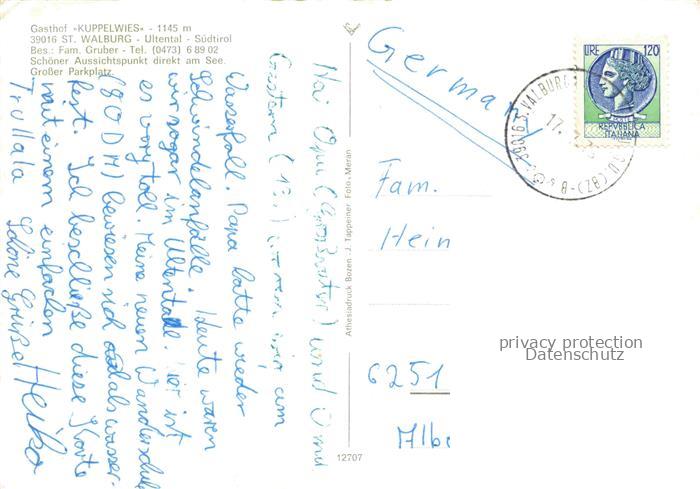 Gasthof »KUPPELWIES« - 1145 m
39016 ST. WALBURG - Ultental - Südtirol
Bes.: Fam. Gruber - Tel. (0473) 6 89 02
Schöner Aussichtspunkt direkt am See.
Großer Parkplatz.
Hai Opa und Oma
Gestern waren wir am
Wasserfall. Papa hatte wieder
Schwindelanfälle. Heute waren
wir sogar im Ultental. Hier ist
es voll toll. Meine neuen Wanderschuhe
(80 DM) bewiesen sich als wasser-
fest. Ich beschließe diese Karte
mit einem einfachen
Trullala
Schöne Grüße Heiko
Athesiadruck Bozen. J. Tappeiner Foto - Meran
12707
Germany
LIRE 120
REPVBBLICA
ITALIANA
39016 S. VALBURGA
17.
(BZ) - B
Fam.
Hein
6251
privacy protection
Datenschutz